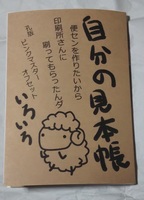 自分の見本帳
便センを作りたいから
印刷所さんに
刷ってもらったんダ
孔版
ピンクマスター
オフセット
いろいろ